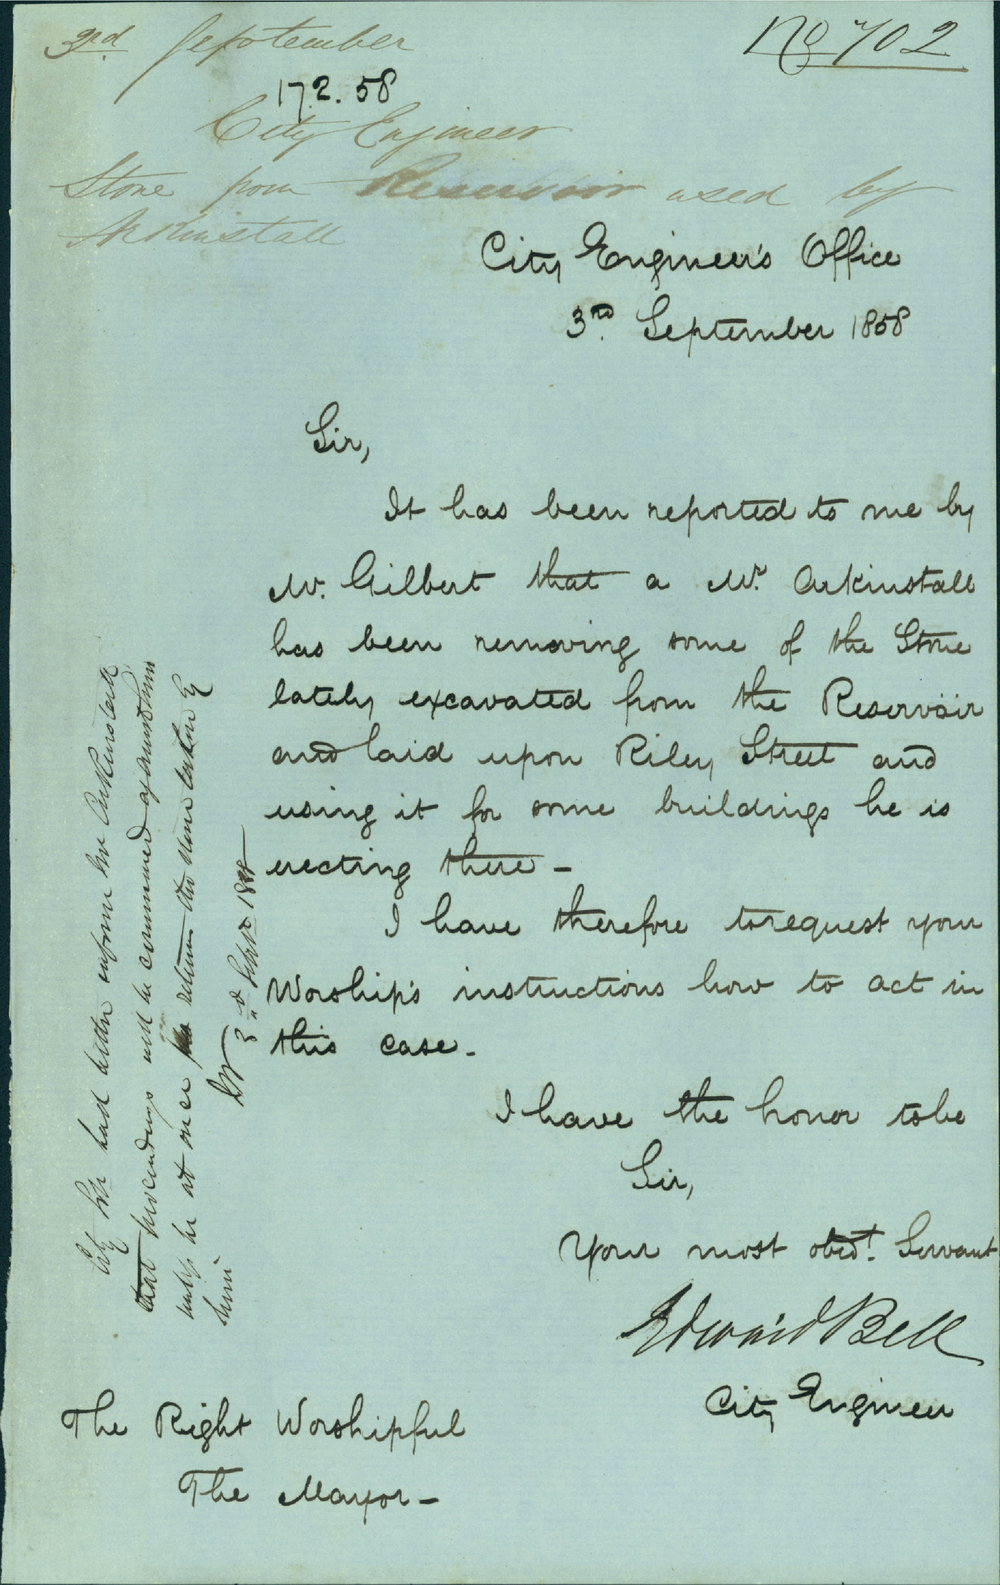 3rd September
No 702
172.58
City Engineer
Stone from Reservoir used by
Arkinstall
City Engineer's Office
3rd September 1858
Sir,
It has been reported to me by
Mr. Gilbert that a Mr. Arkinstall
has been removing some of the Stone
lately excavated from the Reservoir
and laid upon Riley Street and
using it for some buildings he is
erecting there -
I have therefore to request your
Worship's instructions how to act in
this case -
I have the honor to be
Sir,
Your most obedt. Servant
Edward Bell
City Engineer
The Right Worshipful
The Mayor -
City had better inform Mr Arkinstall
that proceedings will be commenced against him
unless he at once return the stone taken by
him
3rd Septr 1858